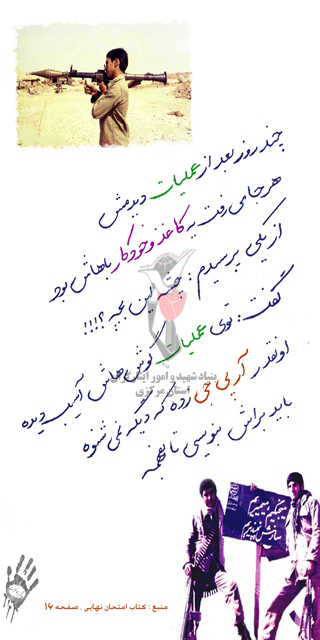 چند روز بعد از عملیات دیدمش
هر جا می رفت یه کاغذ و خودکار باهاش بود
از یکی پرسیدم : چشه این بچه ؟!!!
گفت : توی عملیات گوش هاش آسیب دیده
اونقدر آر پی جی زده که دیگه نمی شنوه
باید براش بنویسی تا بفهمه
بنیاد شهید و امور ایثارگران
استان مرکزی
منبع : کتاب امتحان نهایی . صفحه ۱۶